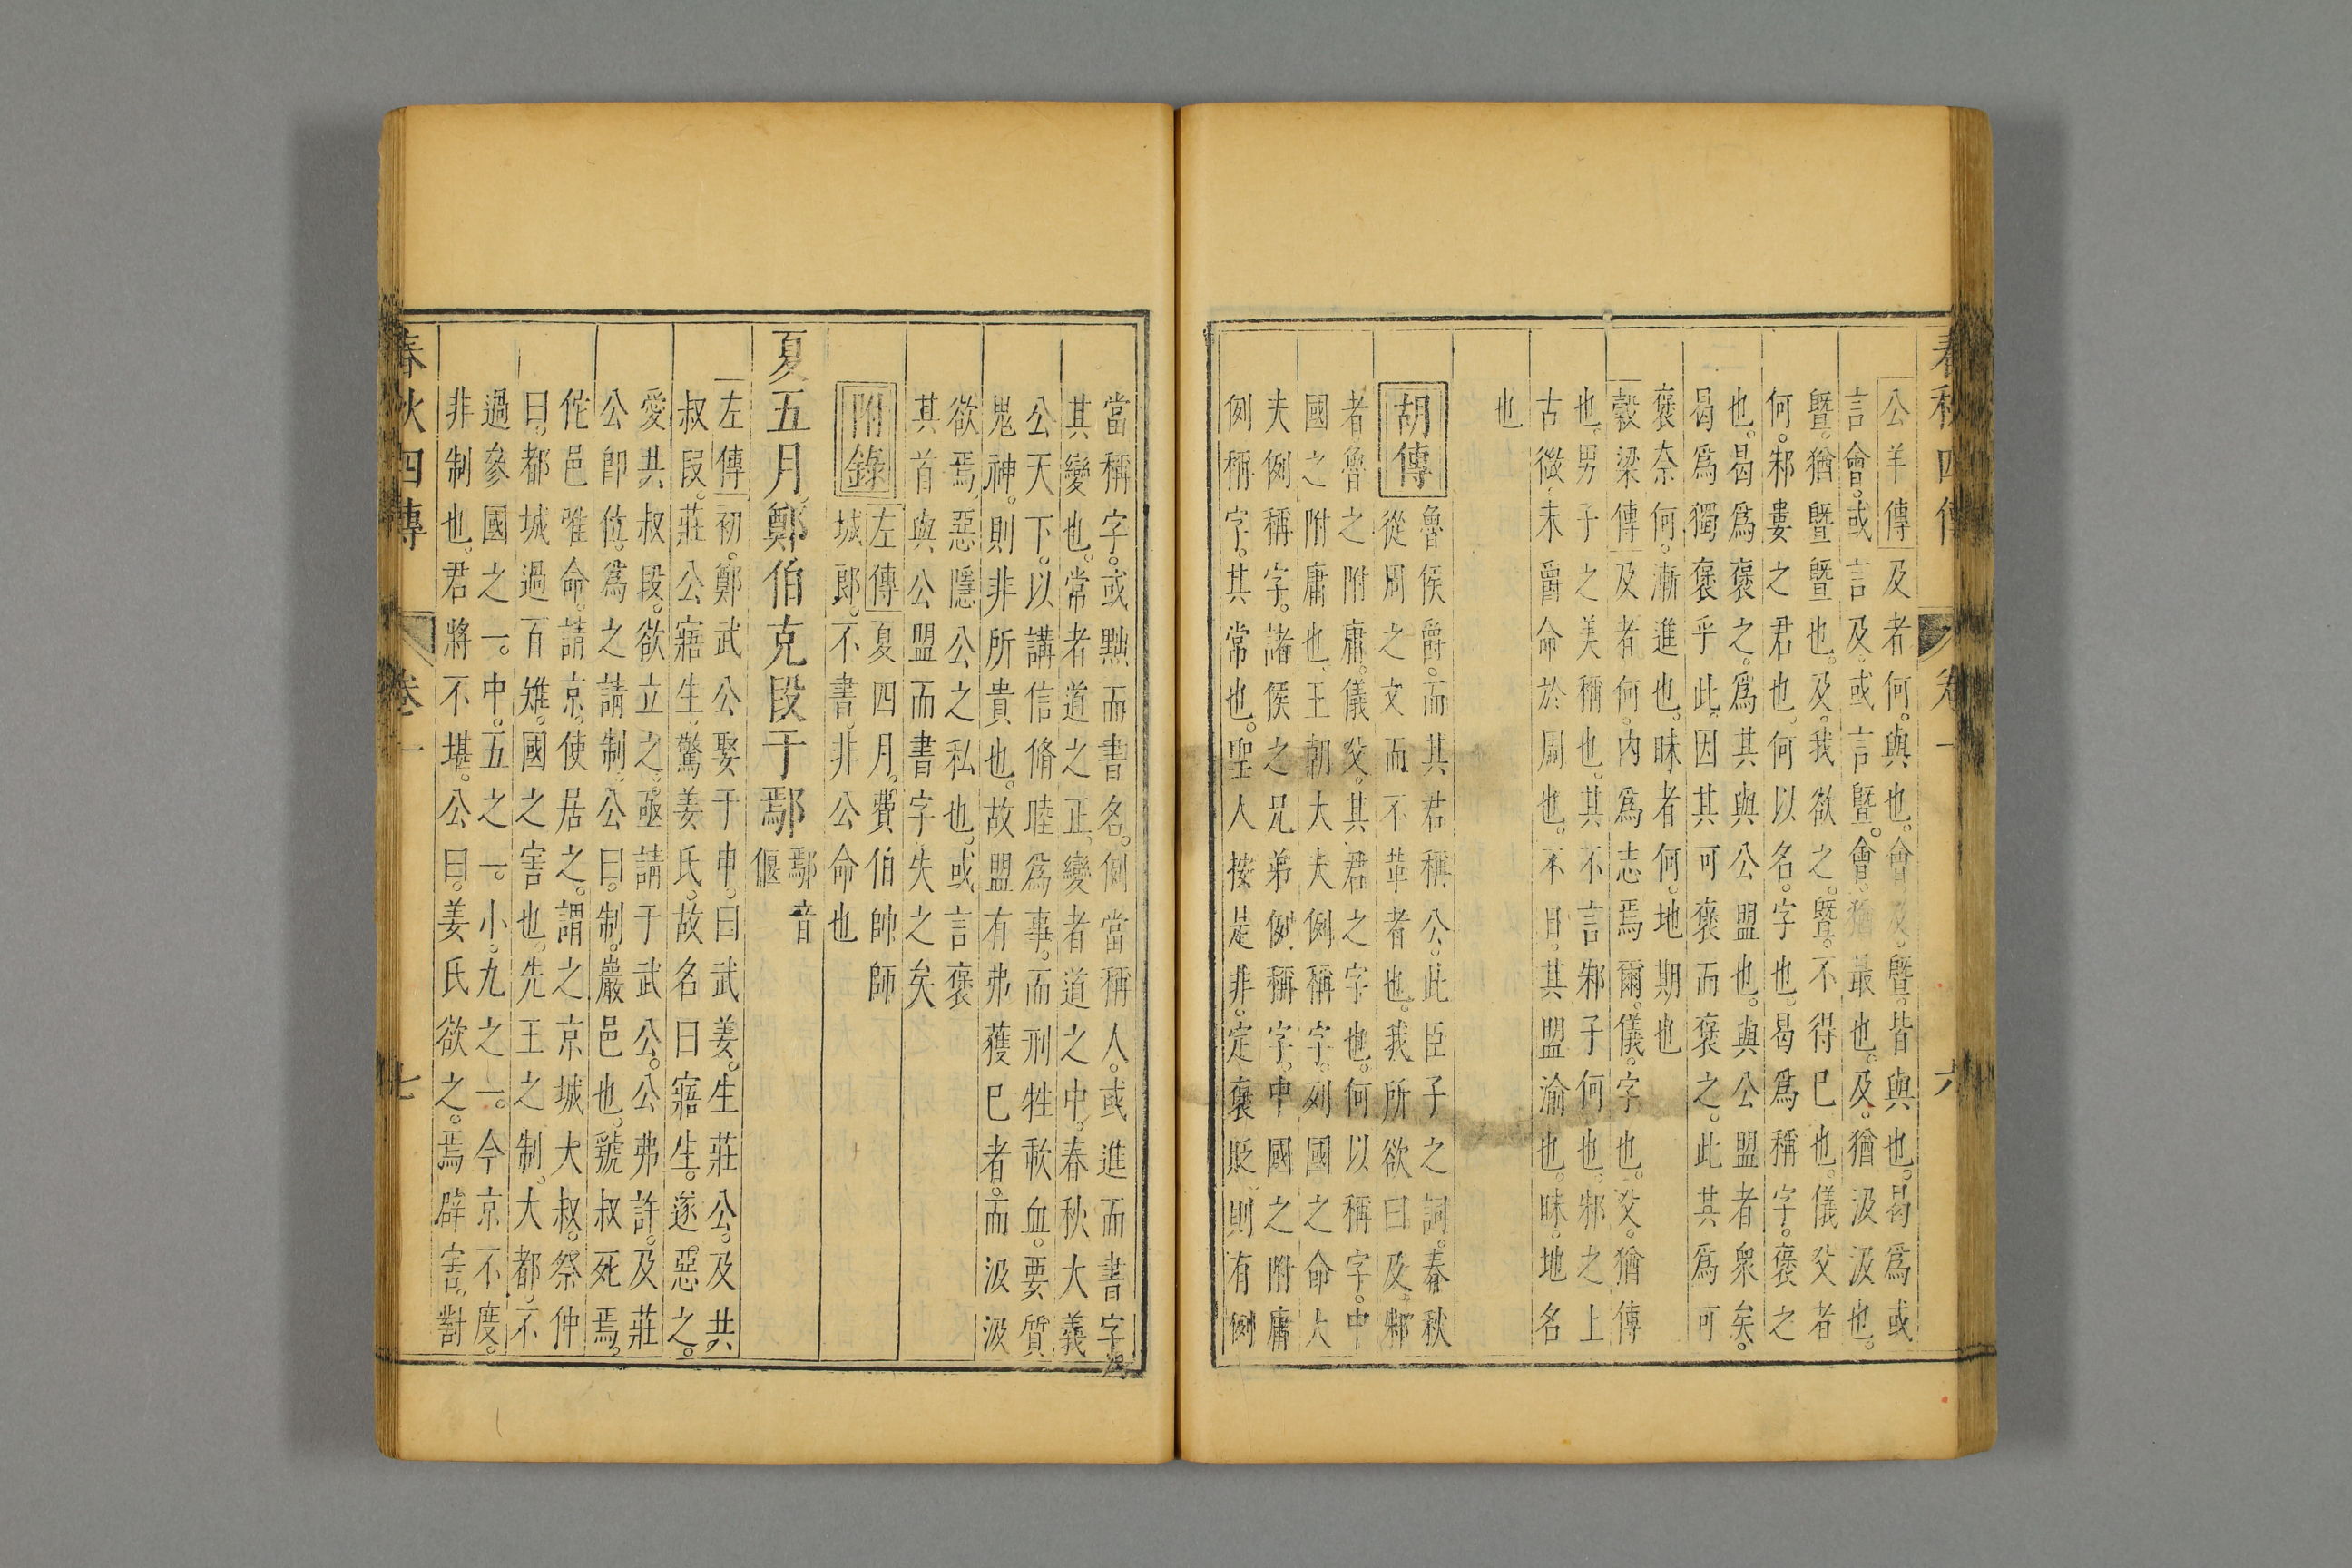 春秋四傳 卷一 六
公羊傳及者何。與也。會及。曁。皆與也。曷爲或
言會。或言及。或言曁。會。猶最也。及。猶汲汲也。
曁。猶曁曁也。及。我欲之。曁。不得已也。儀父者
何。邾婁之君也。何以名。字也。曷爲稱字。褒之
也。曷爲褒之。爲其與公盟也。與公盟者衆矣。
曷爲獨褒乎此。因其可褒而褒之。此其爲可
褒奈何。漸進也。昧者何。地期也
穀梁傳及者何。內爲志焉爾。儀。字也。父。猶傳
也。男子之美稱也。其不言邾子何也。邾之上
古微。未爵命於周也。不日。其盟渝也。昧。地名
也
胡傳魯侯爵。而其君稱公。此臣子之詞。春秋
從周之文而不革者也。我所欲曰及。邾
者魯之附庸。儀父。其君之字也。何以稱字。中
國之附庸也。王朝大夫例稱字。列國之命大
夫例稱字。諸侯之兄弟例稱字。中國之附庸
例稱字。其常也。聖人按是非。定褒貶。則有例
當稱字。或黜而書名。例當稱人。或進而書字。
其變也。常者道之正。變者道之中。春秋大義
公天下。以講信脩睦爲事。而刑牲歃血。要質
鬼神。則非所貴也。故盟有弗獲已者。而汲汲
欲焉。惡隱公之私也。或言褒
其首與公盟而書字。失之矣
附錄左傳夏四月。費伯帥師
城郎。不書。非公命也
夏五月。鄭伯克段于鄢鄢音
偃
左傳初。鄭武公娶于申。曰武姜。生莊公。及共
叔段。莊公寤生。驚姜氏。故名曰寤生。遂惡之。
愛共叔段。欲立之。亟請于武公。公弗許。及莊
公卽位。爲之請制。公曰。制。巖邑也。虢叔死焉。
佗邑唯命。請京。使居之。謂之京城大叔。祭仲
曰。都城過百雉。國之害也。先王之制。大都。不
過參國之一。中。五之一。小。九之一。今京不度。
非制也。君將不堪。公曰。姜氏欲之。焉辟害。對
春秋四傳 卷一 七